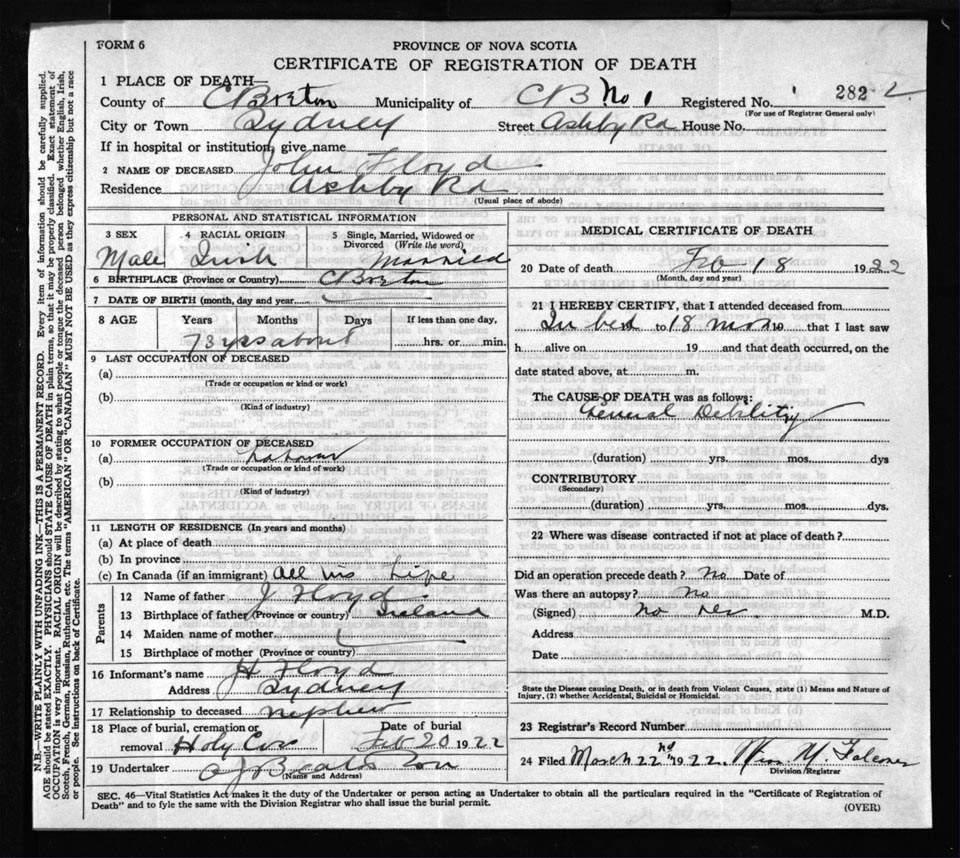 FORM 6
PROVINCE OF NOVA SCOTIA
CERTIFICATE OF REGISTRATION OF DEATH
1 PLACE OF DEATH—
County of C Breton Municipality of CB No 1 Registered No. 282-2
(For use of Registrar General only)
City or Town Sydney Street Ashby Rd House No.
If in hospital or institution, give name
2 NAME OF DECEASED John Floyd
Residence Ashby Rd
(Usual place of abode)
PERSONAL AND STATISTICAL INFORMATION
3 SEX 4 RACIAL ORIGIN 5 Single, Married, Widowed or Divorced (Write the word)
Male Irish Married
6 BIRTHPLACE (Province or Country) C Breton
7 DATE OF BIRTH (month, day and year)
8 AGE Years Months Days If less than one day,
73 yrs about hrs. or min.
9 LAST OCCUPATION OF DECEASED
(a)
(Trade or occupation or kind or work)
(b)
(Kind of industry)
10 FORMER OCCUPATION OF DECEASED
(a) Labourer
(Trade or occupation or kind of work)
(b)
(Kind of industry)
11 LENGTH OF RESIDENCE (In years and months)
(a) At place of death
(b) In province
(c) In Canada (if an immigrant) All his Life
Parents
12 Name of father J Floyd
13 Birthplace of father (Province or country) Ireland
14 Maiden name of mother
15 Birthplace of mother (Province or country)
16 Informant's name H Floyd
Address Sydney
17 Relationship to deceased nephew
18 Place of burial, cremation or removal Holy Cross Date of burial Feb 20 1922
19 Undertaker
(Name and Address)
MEDICAL CERTIFICATE OF DEATH
20 Date of death Feb 18 1922
(Month, day and year)
21 I HEREBY CERTIFY, that I attended deceased from
In bed to 18 mos 19 that I last saw
h alive on 19 and that death occurred, on the
date stated above, at m.
The CAUSE OF DEATH was as follows:
General Debility
(duration) yrs. mos. dys
CONTRIBUTORY
(Secondary)
(duration) yrs. mos. dys.
22 Where was disease contracted if not at place of death?
Did an operation precede death? No Date of
Was there an autopsy? No
(Signed) No Dr M.D.
Address
Date
State the Disease causing Death, or in death from Violent Causes, state (1) Means and Nature of Injury, (2) whether Accidental, Suicidal or Homicidal.
23 Registrar's Record Number
24 Filed March 22nd 1922 M. Falconer
Division Registrar
SEC. 46—Vital Statistics Act makes it the duty of the Undertaker or person acting as Undertaker to obtain all the particulars required in the "Certificate of Registration of
Death" and to fyle the same with the Division Registrar who shall issue the burial permit.
(OVER)
N.B.—WRITE PLAINLY WITH UNFADING INK—THIS IS A PERMANENT RECORD. Every item of information should be carefully supplied.
AGE should be stated EXACTLY. PHYSICIANS should STATE CAUSE OF DEATH in plain terms, so that it may be properly classified. Exact statement of
OCCUPATION is very important. RACIAL ORIGIN will be described by stating to what people or tongue the deceased person belonged whether English, Irish,
Scotch, French, German, Russian, Ruthenian, etc. The terms "AMERICAN" OR "CANADIAN" MUST NOT BE USED as they express citizenship but not a race
or people. See instructions on back of Certificate.